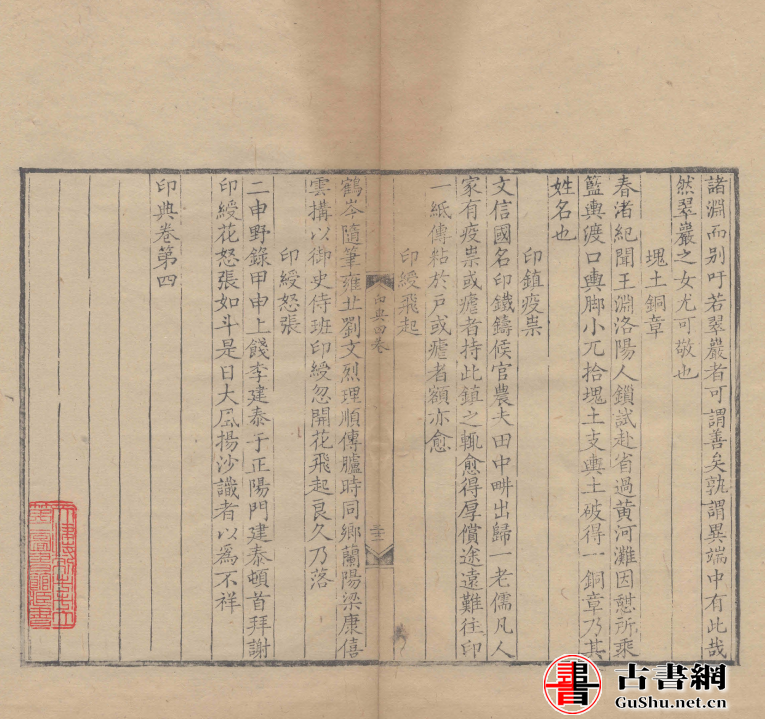 諸淵而别吁若翠巖者可謂善矣孰謂異端中有此哉
然翠巖之女尤可敬也
塊土銅章
春渚紀聞王淵洛陽人鎖試赴省過黃河灘因憇所乘
籃輿渡口輿脚小兀拾塊土支輿土破得一銅章乃其
姓名也
印鎮疫祟
文信國名印鐵鑄候官農夫田中畊出歸一老儒凡人
家有疫祟或瘧者持此鎮之輒愈得厚償途遠難往印
一紙傳粘於戸或瘧者額亦愈
印綬飛起
印典四卷
三十二
鶴岑隨筆雍丘劉文烈理順傳臚時同鄉蘭陽梁康僖
雲搆以御史侍班印綬忽開花飛起良久乃落
印綬怒張
二申野錄甲申上餞李建泰于正陽門建泰頓首拜謝
印綬花怒張如斗是日大風揚沙識者以為不祥
印典卷第四
書
古書網
GuShu.net.cn